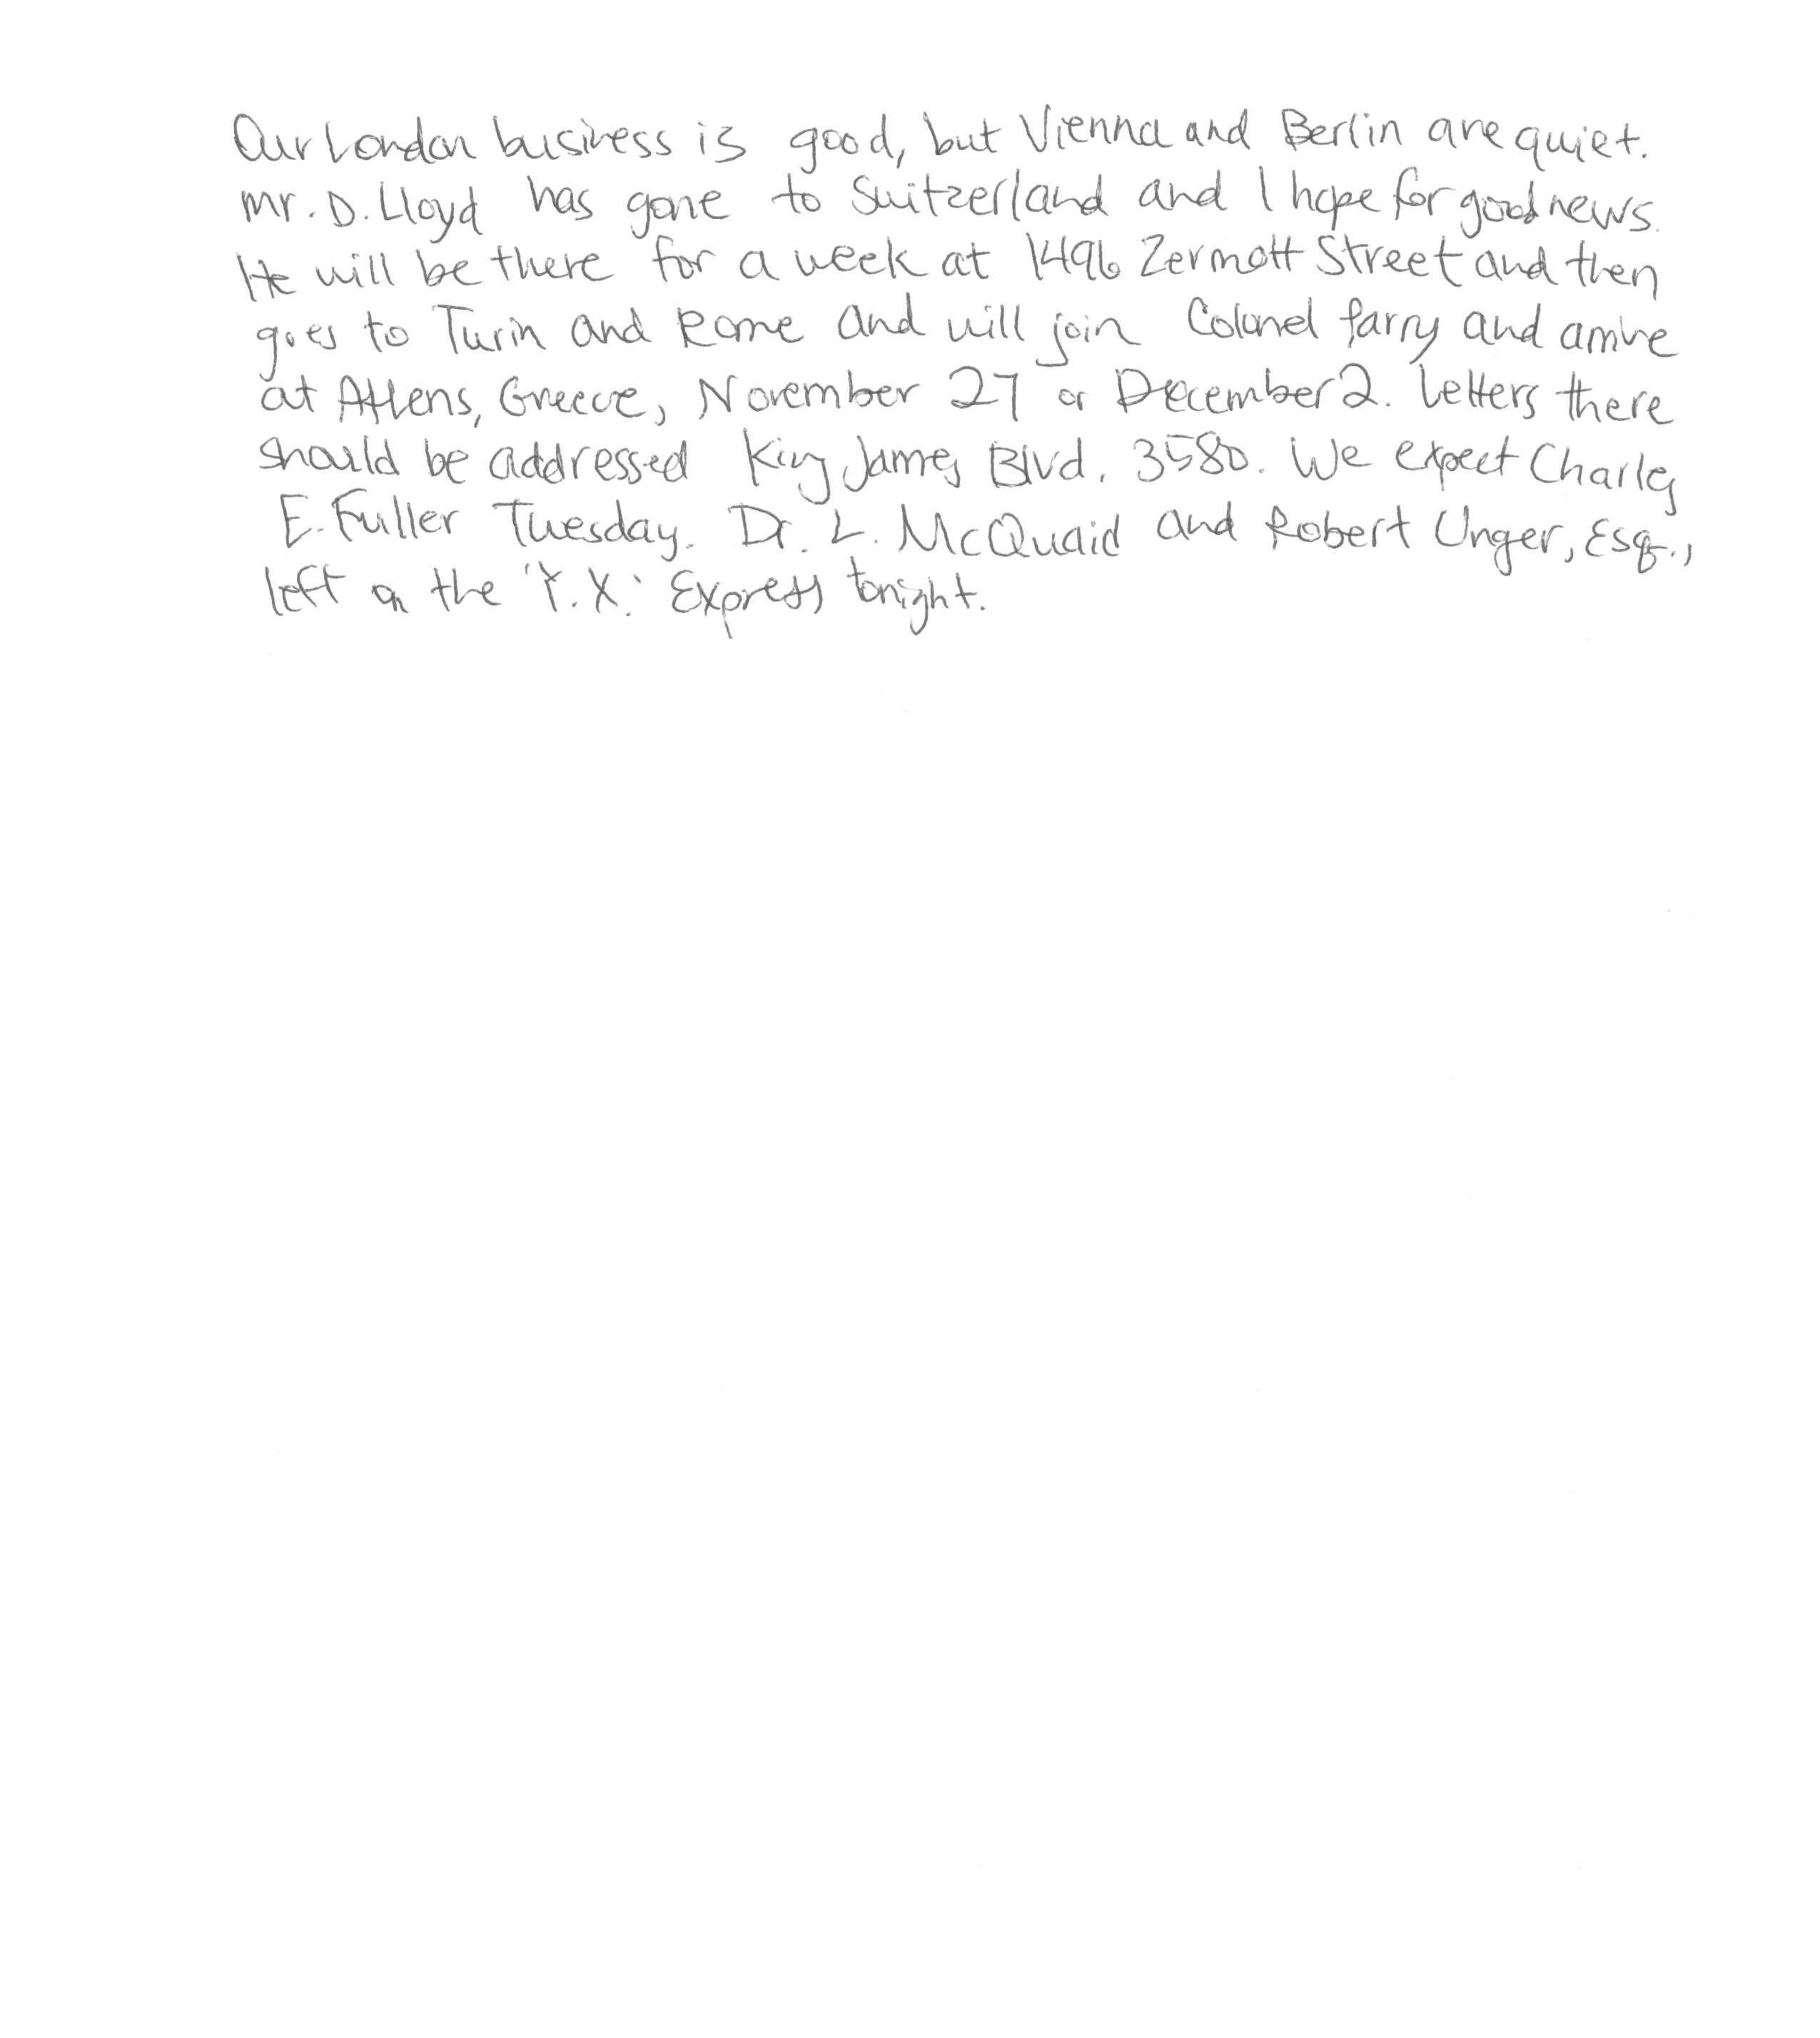 Our London business is good, but Vienna and Berlin are quiet.
Mr. D. Lloyd has gone to Switzerland and I hope for good news.
He will be there for a week at 1496 Zermott Street and then
goes to Turin and Rome and will join Colonel Parry and arrive
at Athens, Greece, November 27 or December 2. Letters there
should be addressed King James Blvd. 3580. We expect Charley
E. Fuller Tuesday. Dr. L. McQuaid and Robert Unger, Esq.,
left on the 'Y.X.' Express tonight.